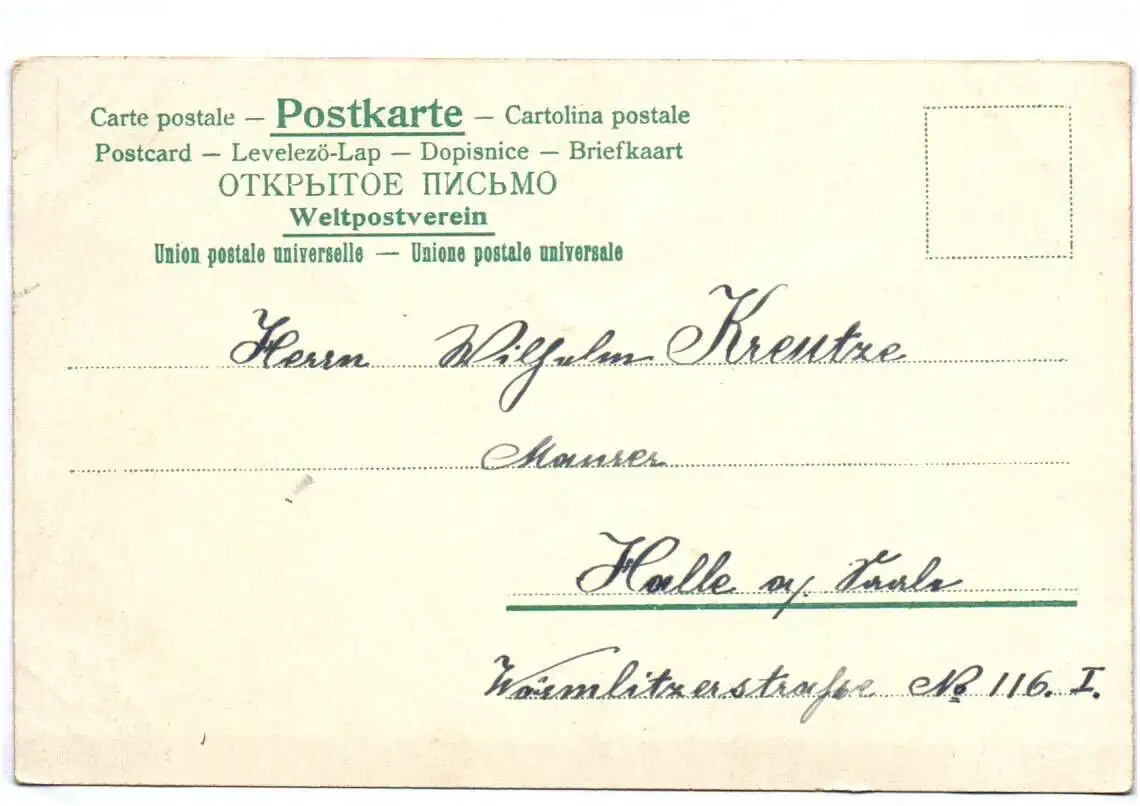 Carte postale — Postkarte — Cartolina postale
Postcard — Levelezö-Lap — Dopisnice — Briefkaart
ОТКРЫТОЕ ПИСЬМО
Weltpostverein
Union postale universelle — Unione postale universale
Herrn Wilhelm Kreutze
Maurer
Halle a/. Saale
Wörmlitzerstraße No 116. I.